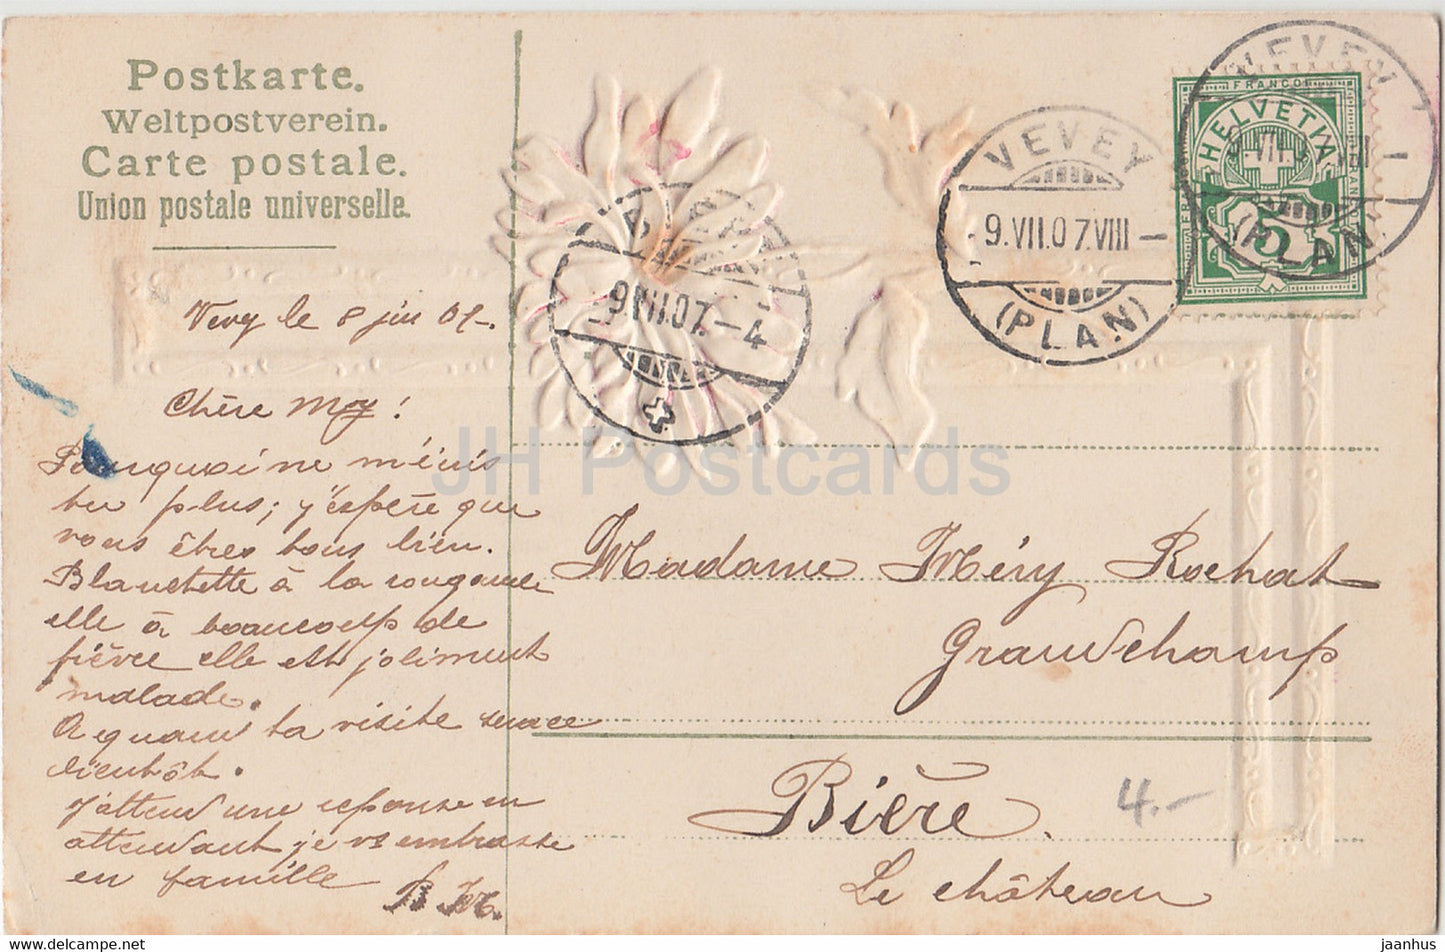 Postkarte.
Weltpostverein.
Carte postale.
Union postale universelle.
Vevey le 8 juin 07.
Chère Mery!
Pourquoi ne m'écris
tu plus; j'éspère que
vous êtes tous bien.
Blanchette à la rougeole
elle à beaucoup de
fièvre elle est joliment
malade.
A quand ta visite
bientôt.
J'attend une reponse en
attendant je vs embrasse
en famille
B M.
FRANCO
HELVETIA
5
VEVEY
9.VII.07.VIII–
(PLAN)
VEVEY
(PLAN)
BIÈRE
9.VII.07.–4
Madame Méry Rochat
Grandchamp
Bière.
Le château
4.–
JH Postcards
jaanhus
www.hippostcard.com